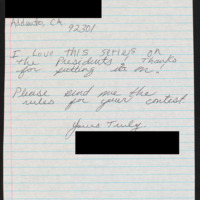 Adelanto, CA.
92301
I Love THIS SERIES ON
the Presidents! Thanks
for putting it on!
Please send me the
rules for your contest
Yours Truly,